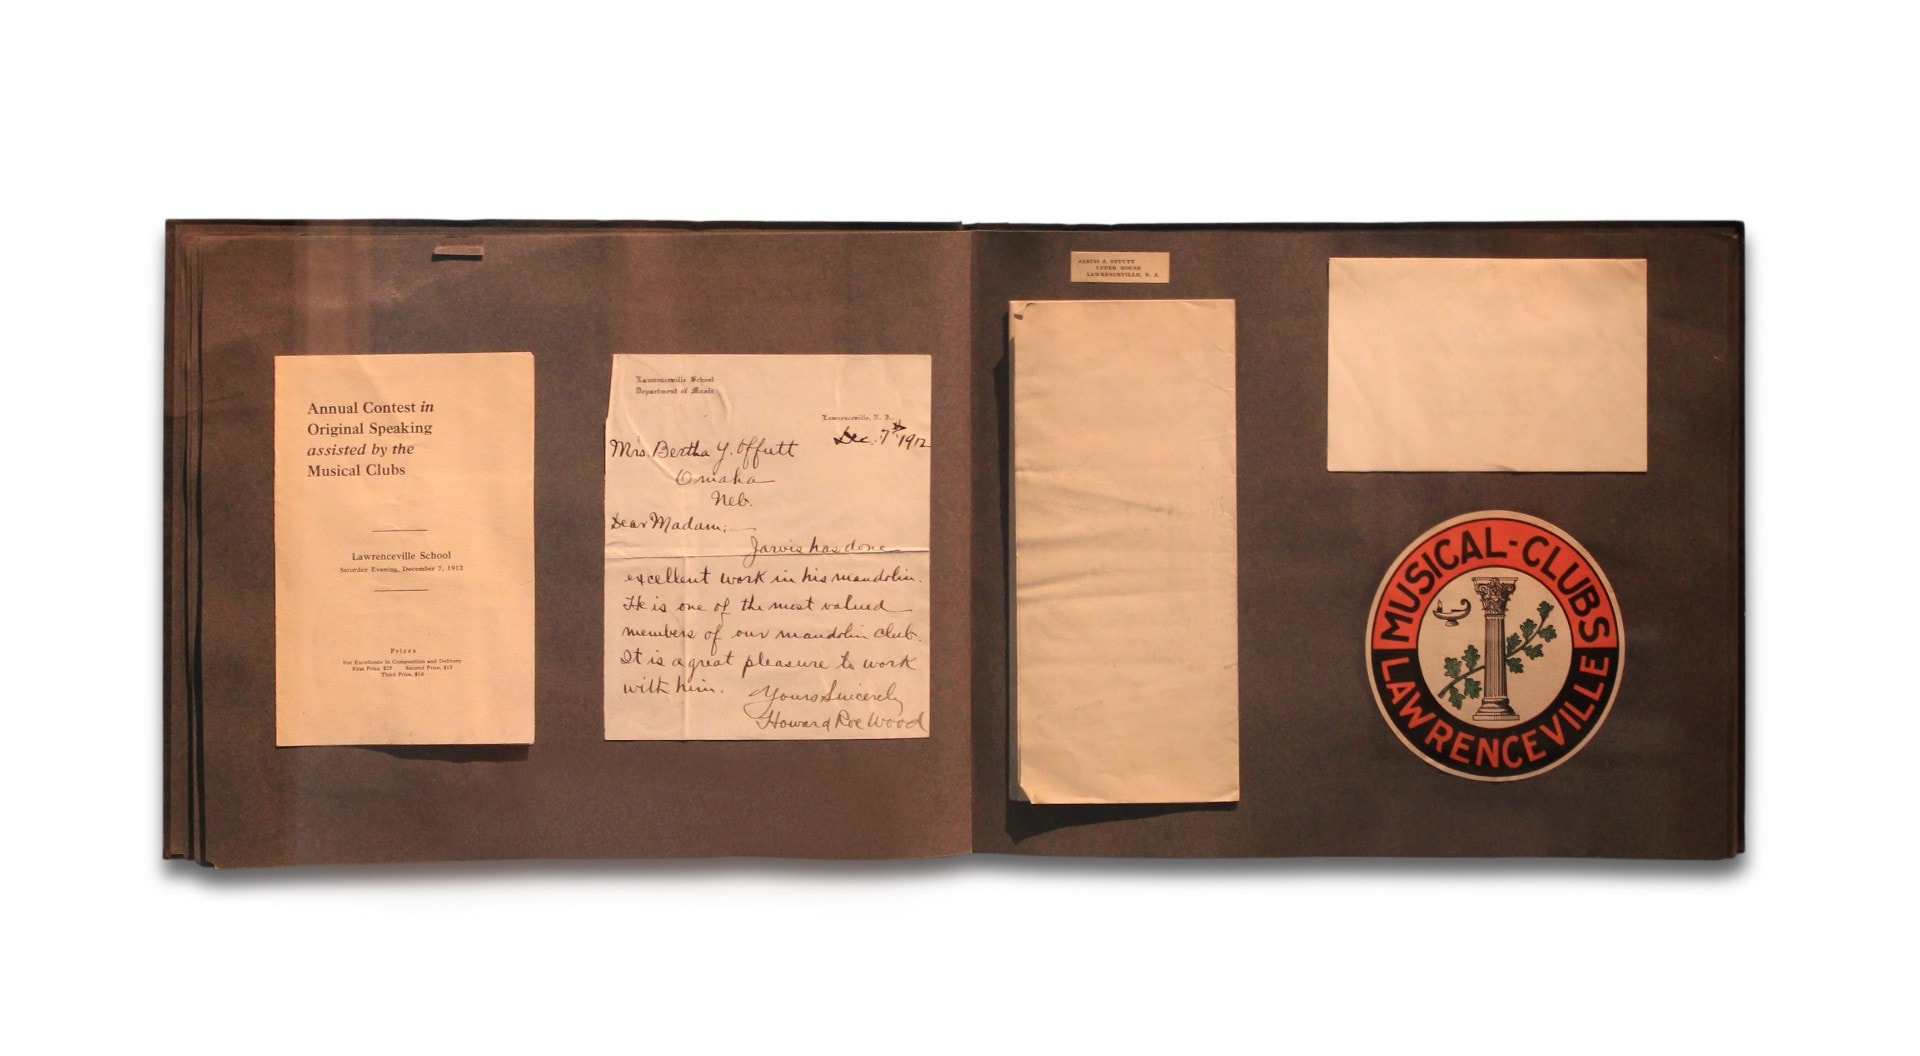 Annual Contest in
Original Speaking
assisted by the
Musical Clubs
Lawrenceville School
Saturday Evening, December 7, 1912
Prizes
For Excellence in Composition and Delivery
First Prize, $25 Second Prize, $15
Third Prize, $10
Lawrenceville School
Department of Music
Lawrenceville, N. J.,
Dec. 7th 1912
Mrs. Bertha Y. Offutt
Omaha
Neb.
Dear Madam:—
Jarvis has done
excellent work in his mandolin.
He is one of the most valued
members of our mandolin club.
It is a great pleasure to work
with him.
Yours Sincerely
Howard Roe Wood
JARVIS J. OFFUTT
UPPER HOUSE
LAWRENCEVILLE, N. J.
MUSICAL-CLUBS
LAWRENCEVILLE